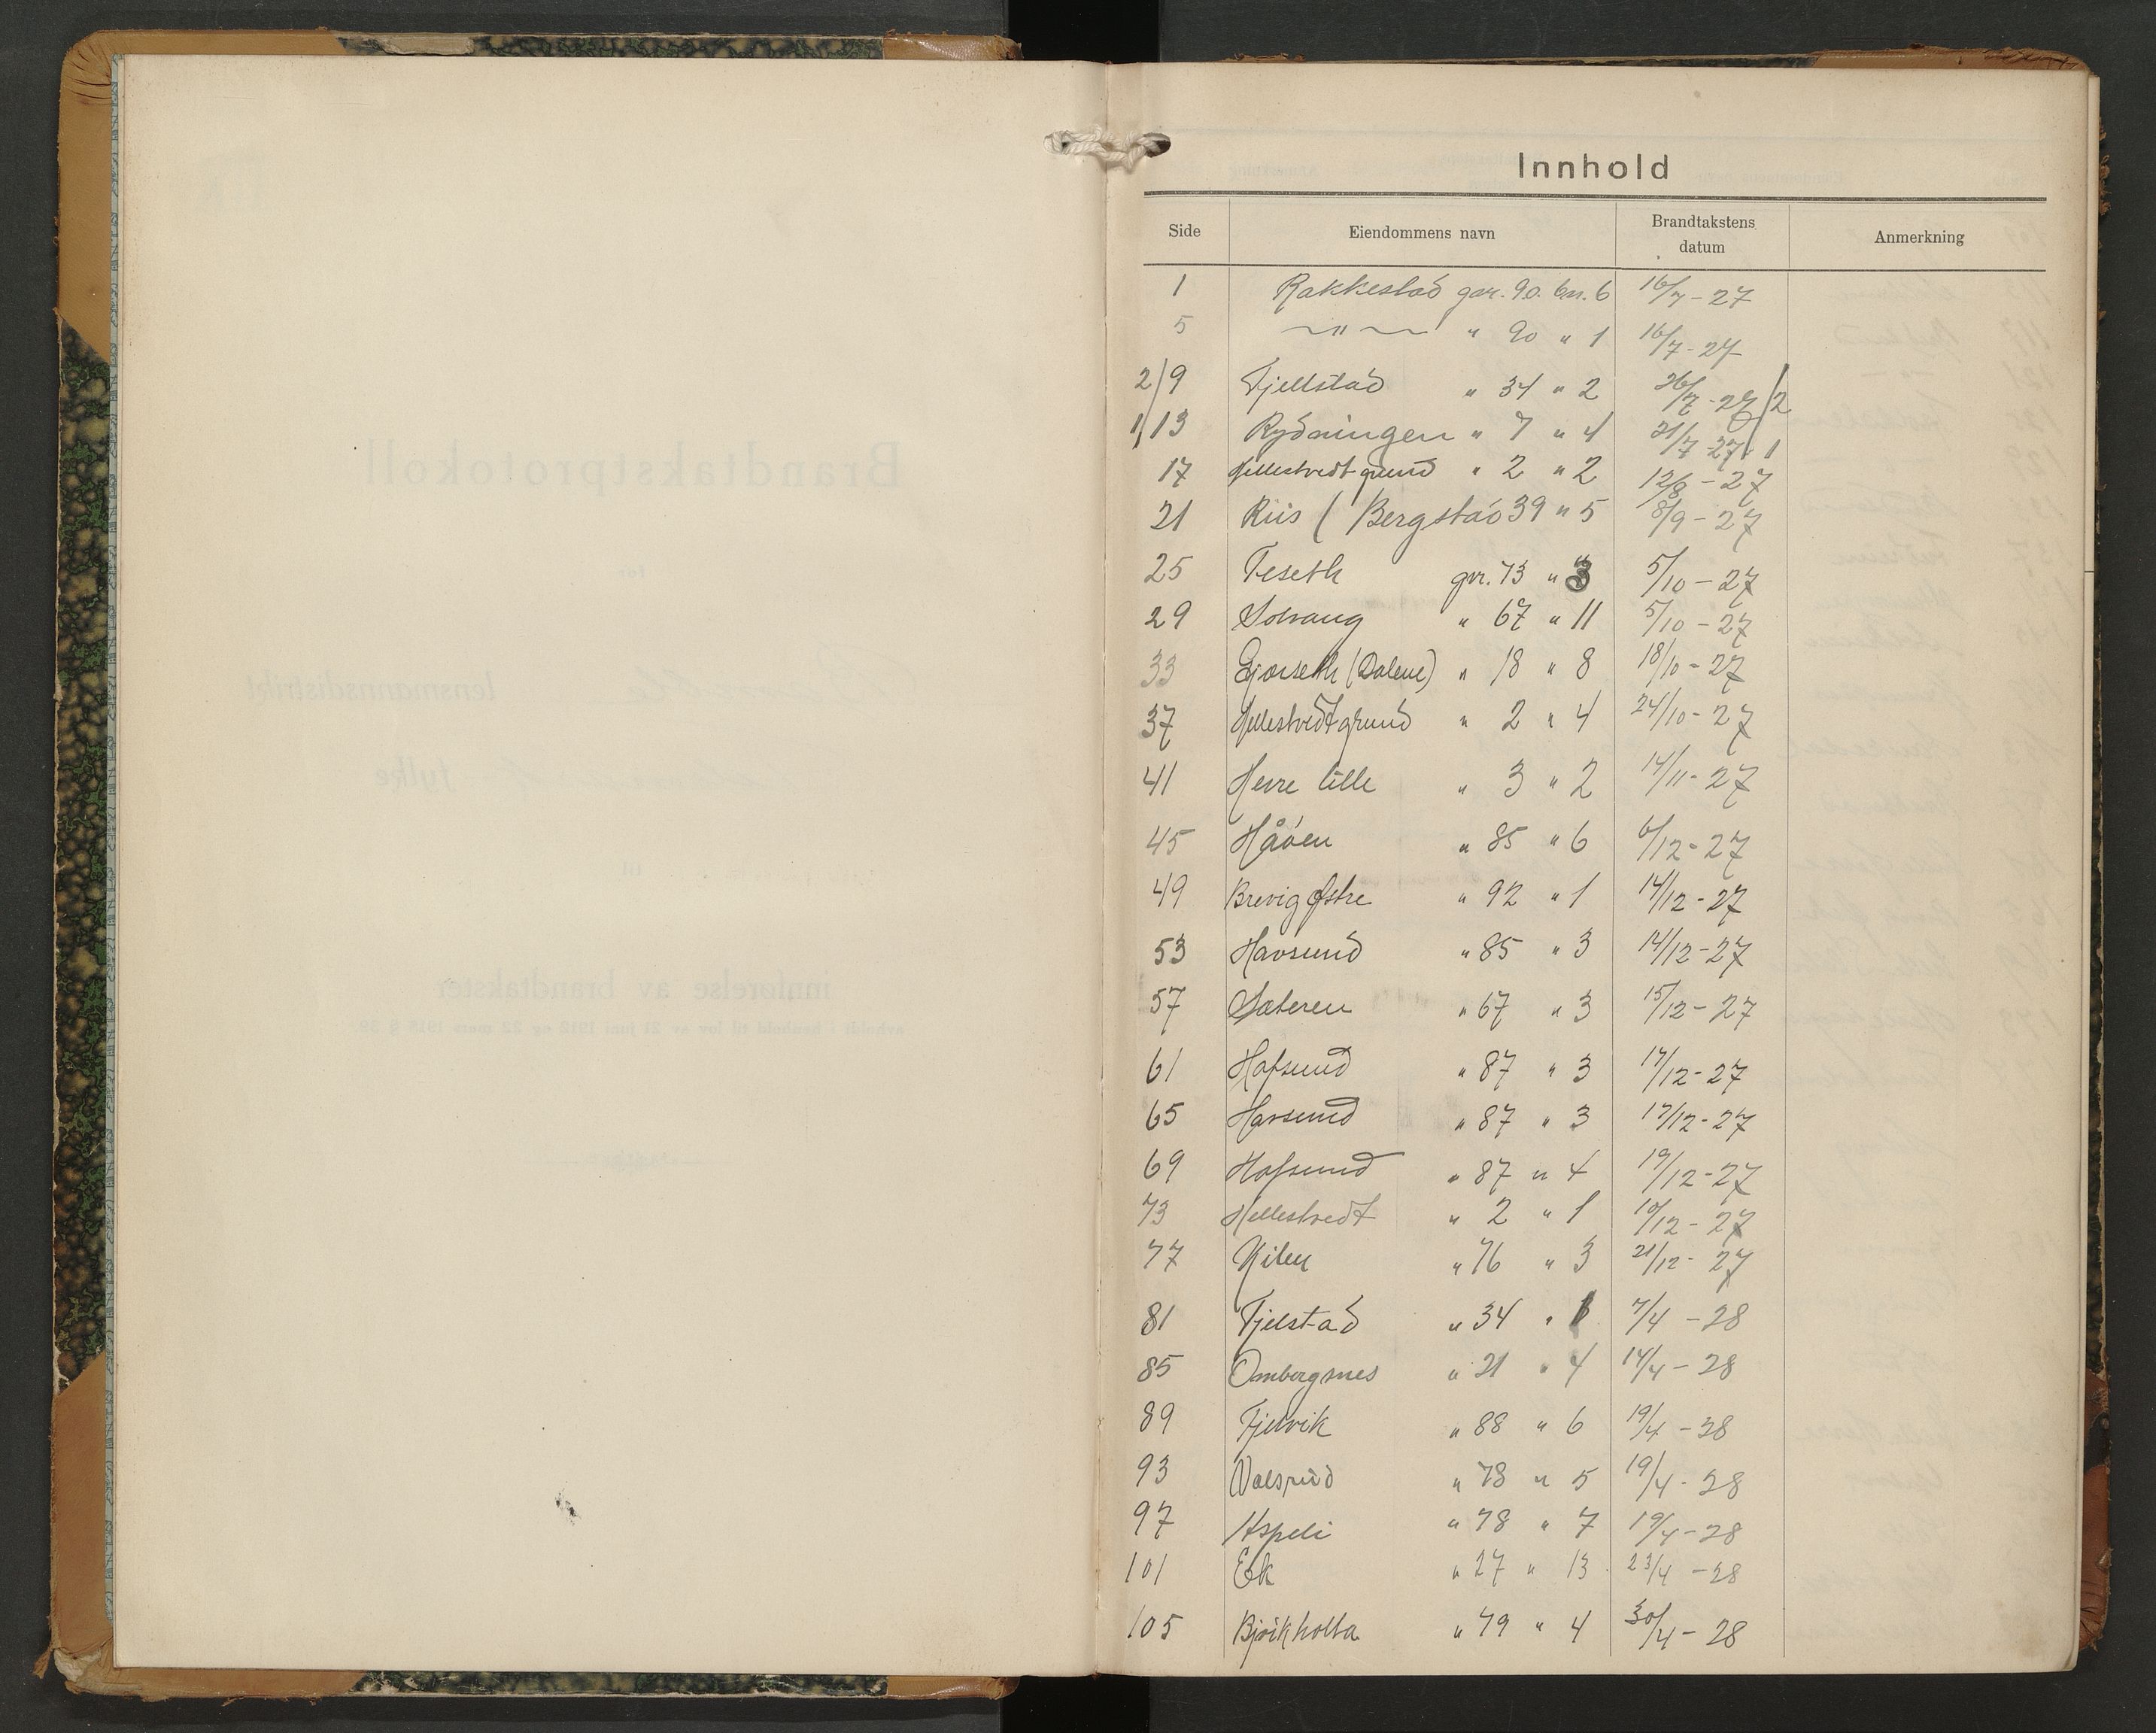 Innhold
Side Eiendommens navn Brandtakstens datum Anmerkning
1 Rakkestad gnr. 90. bn. 6 16/7 - 27
5 —"— " 90 " 1 16/7 - 27
2/9 Fjellstad " 34 " 2 26/7 - 27/2
1/13 Rydningen " 7 " 4 21/7 27/1
17 Hellestvedt grund " 2 " 2 12/8 - 27
21 Riis ( Bergstad 39 " 5 8/9 - 27
25 Teseth gnr. 73 " 3 5/10 - 27
29 Solvang " 67 " 11 5/10 - 27
33 (Dalene) " 18 " 8 18/10 - 27
37 Hellestvedtgrund " 2 " 4 24/10 - 27
41 Herre lille " 3 " 2 14/11 - 27
45 Håöen " 85 " 6 6/12 - 27
49 Brevig østre " 92 " 1 14/12 - 27
53 Havsund " 85 " 3 14/12 - 27
57 Sæteren " 67 " 3 15/12 - 27
61 Hafsund " 87 " 3 17/12 - 27
65 Havsund " 87 " 3 17/12 - 27
69 Hafsund " 87 " 4 19/12 - 27
73 Hellestvedt " 2 " 1 19/12 - 27
77 Kilen " 76 " 3 21/12 - 27
81 Fjelstad " 34 " 7/4 - 28
85 Ombergsnes " 21 " 4 14/4 - 28
89 Fjelvik " 88 " 6 19/4 - 28
93 Valsrud " 78 " 5 19/4 - 28
97 Aspeli " 78 " 7 19/4 - 28
101 Ek " 27 " 13 23/4 - 28
105 Björkholta " 79 " 4 30/4 - 28